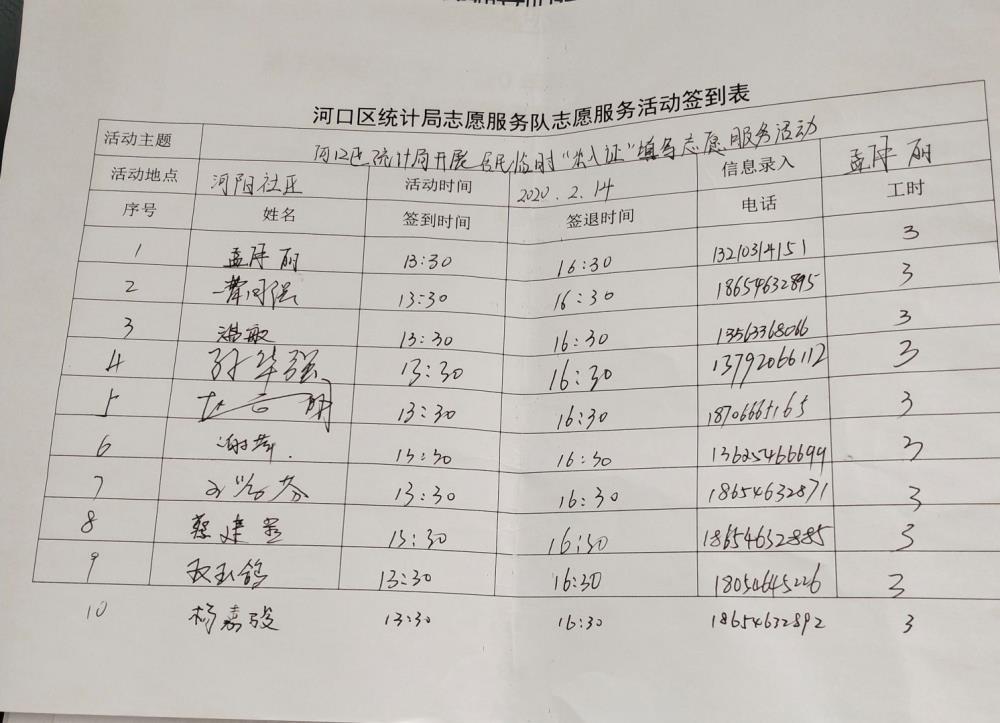 河口区统计局志愿服务队志愿服务活动签到表
活动主题 河口区统计局开展居民临时“出入证”填写志愿服务活动 信息录入 孟 丽
活动地点 河阳社区 活动时间 2020.2.14
序号 姓名 签到时间 签退时间 电话 工时
1 孟 丽 13:30 16:30 13210314151 3
2 13:30 16:30 18654632895 3
3 13:30 16:30 13563368066 3
4 孙华强 13:30 16:30 13792066112 3
5 13:30 16:30 18706665165 3
6 13:30 16:30 13625466699 3
7 13:30 16:30 18654632871 3
8 蔡建 13:30 16:30 18654632885 3
9 13:30 16:30 18054645226 3
10 杨嘉骏 13:30 16:30 18654632892 3